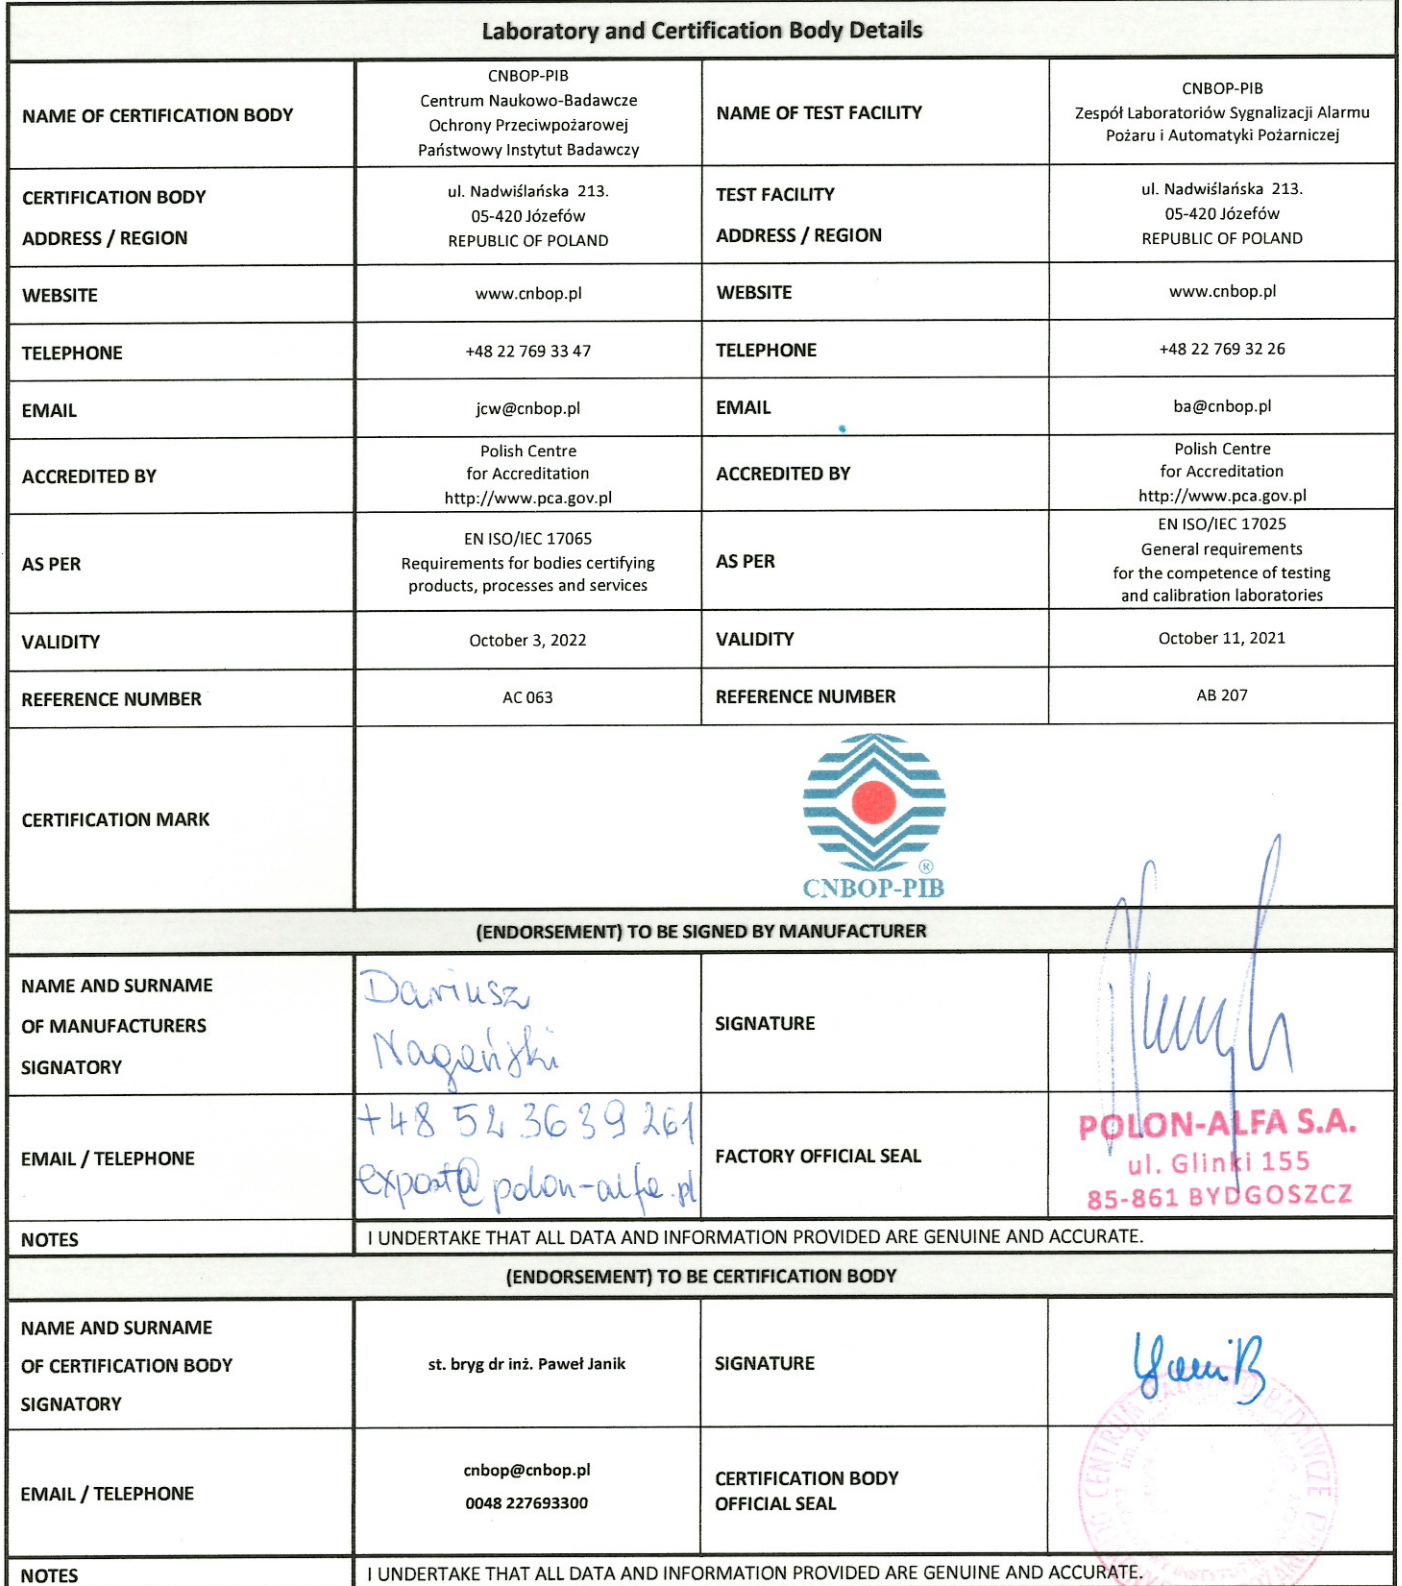 Laboratory and Certification Body Details
NAME OF CERTIFICATION BODY
CNBOP-PIB
Centrum Naukowo-Badawcze
Ochrony Przeciwpożarowej
Państwowy Instytut Badawczy
NAME OF TEST FACILITY
CNBOP-PIB
Zespół Laboratoriów Sygnalizacji Alarmu
Pożaru i Automatyki Pożarniczej
CERTIFICATION BODY
ADDRESS / REGION
ul. Nadwiślańska 213.
05-420 Józefów
REPUBLIC OF POLAND
TEST FACILITY
ADDRESS / REGION
ul. Nadwiślańska 213.
05-420 Józefów
REPUBLIC OF POLAND
WEBSITE
www.cnbop.pl
WEBSITE
www.cnbop.pl
TELEPHONE
+48 22 769 33 47
TELEPHONE
+48 22 769 32 26
EMAIL
jcw@cnbop.pl
EMAIL
ba@cnbop.pl
ACCREDITED BY
Polish Centre
for Accreditation
http://www.pca.gov.pl
ACCREDITED BY
Polish Centre
for Accreditation
http://www.pca.gov.pl
AS PER
EN ISO/IEC 17065
Requirements for bodies certifying
products, processes and services
AS PER
EN ISO/IEC 17025
General requirements
for the competence of testing
and calibration laboratories
VALIDITY
October 3, 2022
VALIDITY
October 11, 2021
REFERENCE NUMBER
AC 063
REFERENCE NUMBER
AB 207
CERTIFICATION MARK
®
CNBOP-PIB
(ENDORSEMENT) TO BE SIGNED BY MANUFACTURER
NAME AND SURNAME
OF MANUFACTURERS
SIGNATORY
Dariusz
Nagański
SIGNATURE
EMAIL / TELEPHONE
+48 52 36 39 261
export@polon-alfa.pl
FACTORY OFFICIAL SEAL
POLON-ALFA S.A.
ul. Glinki 155
85-861 BYDGOSZCZ
NOTES
I UNDERTAKE THAT ALL DATA AND INFORMATION PROVIDED ARE GENUINE AND ACCURATE.
(ENDORSEMENT) TO BE CERTIFICATION BODY
NAME AND SURNAME
OF CERTIFICATION BODY
SIGNATORY
st. bryg dr inż. Paweł Janik
SIGNATURE
EMAIL / TELEPHONE
cnbop@cnbop.pl
0048 227693300
CERTIFICATION BODY
OFFICIAL SEAL
NOTES
I UNDERTAKE THAT ALL DATA AND INFORMATION PROVIDED ARE GENUINE AND ACCURATE.